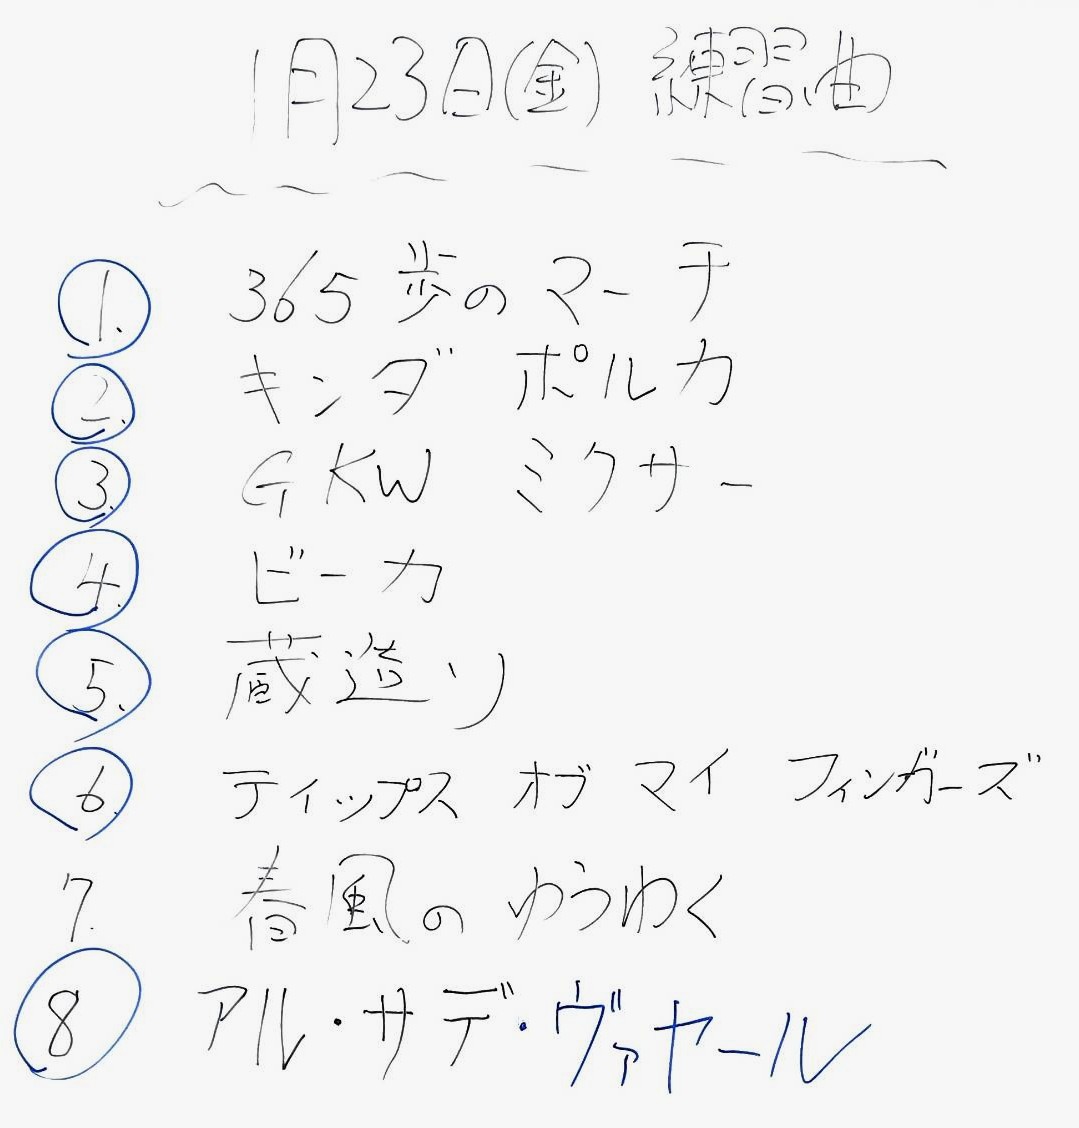 1月23日(金) 練習曲
1. 365歩のマーチ
2. キンダ ポルカ
3. GKW ミクサー
4. ビーカ
5. 蔵造り
6. ティップス オブ マイ フィンガーズ
7. 春風のゆうわく
8 アル・サデ・ヴァヤール